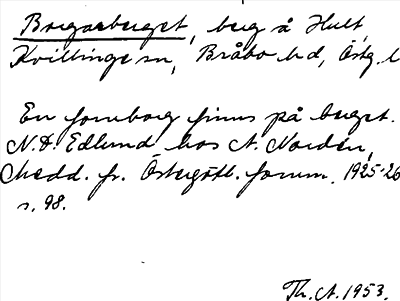 Borgarberget, berg å Hult,
Kvillinge sn, Bråbo hd, Östg. l
En fornborg finns på berget.
N.D. Edlund hos A. Nordén,
Medd. fr. Östergötl. fornm. 1925-26
s. 98.
Th. A. 1953.